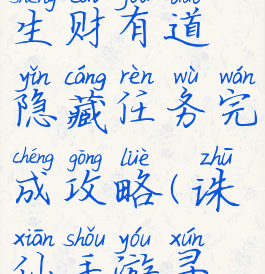 shēng cái yǒu dào
生财有道
yǐn cáng rèn wù wán
隐藏任务完
chéng gōng lüè zhū
成攻略(诛
xiān shǒu yóu xún
仙手游寻